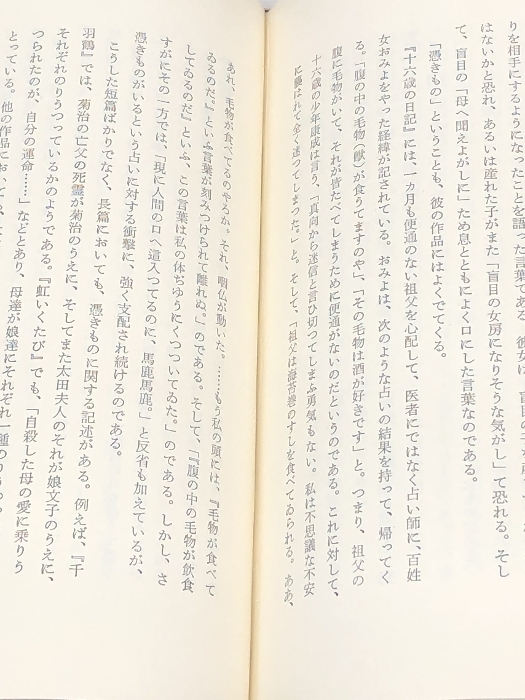 りを相手にするようになったことを語った言葉である。彼女は、盲目の子を
はないかと恐れ、あるいは産れた子がまた「盲目の女房になりそうな気がし」て恐れる。そし
て、盲目の「母へ聞えよがしに」ため息とともによく口にした言葉なのである。
「憑きもの」ということも、彼の作品にはよくでてくる。
『十六歳の日記』には、一ヵ月も便通のない祖父を心配して、医者にではなく占い師に、百姓
女おみよをやった経緯が記されている。おみよは、次のような占いの結果を持って、帰ってく
る。「腹の中の毛物（獣）が食うてますのや」「その毛物は酒が好きです」と。つまり、祖父の
腹に毛物がいて、それが皆たべてしまうために便通がないのだというのである。これに対して、
十六歳の少年康成は言う、「真向から迷信と言ひ切つてしまふ勇気もない。私は不思議な不安
に襲はれて全く迷つてしまつた。」と。そして、「祖父は海苔巻のすしを食べてゐられる。ああ、
あれ、毛物が食べてるのやろか。それ、咽仏が動いた。……もう私の頭には、『毛物が食べて
ゐるのだ。』といふ言葉が刻みつけられて離れぬ。」のである。そして、「『腹の中の毛物が飲食
してゐるのだ』といふ、この言葉は私の体ぢゆうにくつついてゐた。」のである。しかし、さ
すがにその一方では、「現に人間の口へ這入つてるのに、馬鹿馬鹿。」と反省も加えているが、
憑きものがいるという占いに対する衝撃に、強く支配され続けるのである。
こうした短篇ばかりでなく、長篇においても、憑きものに関する記述がある。例えば、『千
羽鶴』では、菊治の亡父の死霊が菊治のうえに、そしてまた太田夫人のそれが娘文子のうえに、
それぞれのりうつっているかのようである。『虹いくたび』でも、「自殺した母の愛に乗りう
つられたのが、自分の運命……」などとあり、母達が娘達にそれぞれ一種の
とっている。他の作品においても、